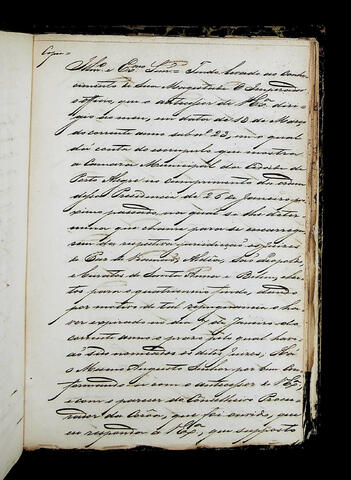 Copia
Illmo. e Exmo. Senr. = Tendo levado ao Conhe-
cimento de Sua Magestade O Imperador
o officio, que o antecessor de V. Exa. diri-
gio ao meu, em data de 13 de Março
do corrente anno sob no. 22, no qual
dá conta do escrupulo que mostra
a Camara Municipal da Cidade de
Porto Alegre no cumprimento da ordem
dessa Presidencia de 26 de Janeiro pro-
ximo passado, na qual se lhe deter-
mina que chame para se encarrega-
rem da respectiva jurisdicção os Juizes
de Paz de Viamão, Aldêa, São Leopoldo,
e Curatos de Santa Anna e Belem, elei-
tos para o quatriennio findo, dando
por motivo de tal repugnancia o
haver expirado no dia 7 de Janeiro do
corrente anno o prazo pelo qual havi-
ão sido nomeados os ditos Juizes, Ha
o Mesmo Augusto Senhor por bem Con-
formando-se com o antecessor de V. Exa.
e com o parecer do Conselheiro Procu-
rador da Corôa, que foi ouvido, man-
da responder a V. Exa., que supposto